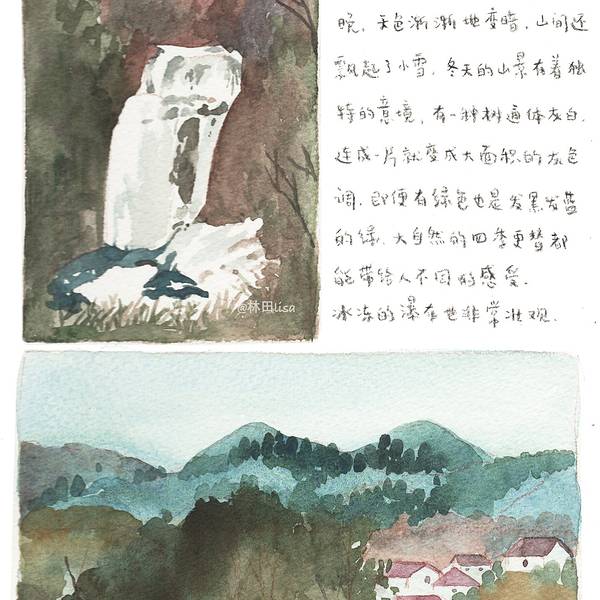 晚，天色渐渐地变暗，山间还
飘起了小雪，冬天的山景有着独
特的意境，有一种树通体灰白，
连成一片就变成大面积的灰色
调，即便有绿色也是发黑发蓝
的绿，大自然的四季更替都
能带给人不同的感受。
冰冻的瀑布也非常壮观。
@林田lisa